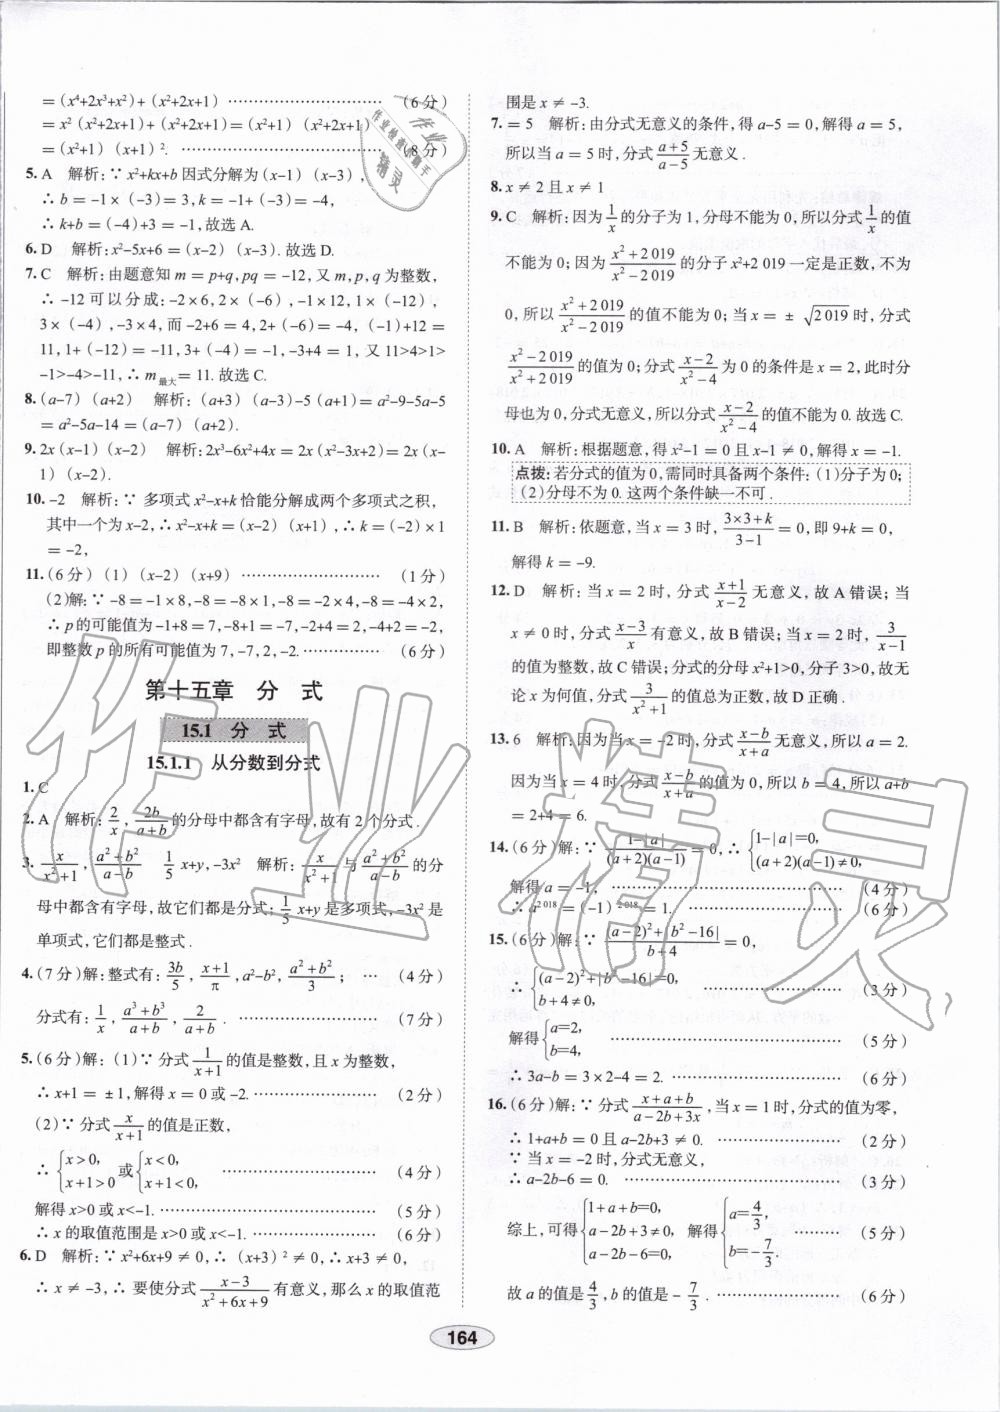 =(x⁴+2x³+x²)+(x²+2x+1) ……………………………… (6分)
=x²(x²+2x+1)+(x²+2x+1)=(x²+1)(x²+2x+1)
=(x²+1)(x+1)². ……………………………… (8分)
5. A 解析:∵ x²+kx+b因式分解为(x-1)(x-3),
∴ b=-1×(-3)=3,k=-1+(-3)=-4,
∴ k+b=(-4)+3=-1,故选A.
6. D 解析:x²-5x+6=(x-2)(x-3).故选D.
7. C 解析:由题意知m=p+q,pq=-12,又m,p,q为整数,
∴ -12可以分成:-2×6,2×(-6),-1×12,1×(-12),
3×(-4),-3×4,而-2+6=4,2+(-6)=-4,(-1)+12=
11,1+(-12)=-11,3+(-4)=-1,-3+4=1,又11>4>1>
-1>-4>-11,∴ m最大=11.故选C.
8. (a-7)(a+2) 解析:(a+3)(a-3)-5(a+1)=a²-9-5a-5
=a²-5a-14=(a-7)(a+2).
9. 2x(x-1)(x-2) 解析:2x³-6x²+4x=2x(x²-3x+2)=2x(x-
1)(x-2).
10. -2 解析:∵ 多项式x²-x+k恰能分解成两个多项式之积,
其中一个为x-2,∴ x²-x+k=(x-2)(x+1),∴ k=(-2)×1
=-2,
11. (6分)(1)(x-2)(x+9) ……………………… (1分)
(2)解:∵ -8=-1×8,-8=-8×1,-8=-2×4,-8=-4×2,
∴ p的可能值为-1+8=7,-8+1=-7,-2+4=2,-4+2=-2,
即整数p的所有可能值为7,-7,2,-2. …………… (6分)
第十五章 分 式
15.1 分 式
15.1.1 从分数到分式
1. C
2. A 解析:2/x,2b/(a+b)的分母中都含有字母,故有2个分式.
3. x/(x²+1),(a²+b²)/(a-b) 1/5x+y,-3x² 解析:x/(x²+1)与(a²+b²)/(a-b)的分
母中都含有字母,故它们都是分式;1/5x+y是多项式,-3x²是
单项式,它们都是整式.
4. (7分)解:整式有:3b/5,(x+1)/π,a²-b²,(a²+b²)/3; … (4分)
分式有:1/x,(a³+b³)/(a+b),2/(a+b). ……………………… (7分)
5. (6分)解:(1)∵ 分式1/(x+1)的值是整数,且x为整数,
∴ x+1=±1,解得x=0或-2. ……………………… (2分)
(2)∵ 分式x/(x+1)的值是正数,
∴ {x>0, x+1>0 或{x<0, x+1<0, ……………………… (4分)
解得x>0或x<-1. ……………………… (5分)
∴ x的取值范围是x>0或x<-1. ……………………… (6分)
6. D 解析:∵ x²+6x+9≠0,∴ (x+3)²≠0,∴ x+3≠0,
∴ x≠-3,∴ 要使分式(x-3)/(x²+6x+9)有意义,那么x的取值范
围是x≠-3.
7. =5 解析:由分式无意义的条件,得a-5=0,解得a=5,
所以当a=5时,分式(a+5)/(a-5)无意义.
8. x≠2且x≠1
9. C 解析:因为1/x的分子为1,分母不能为0,所以分式1/x的值
不能为0;因为(x²+2 019)/(x²-2 019)的分子x²+2 019一定是正数,不为
0,所以(x²+2 019)/(x²-2 019)的值不能为0;当x=±√2 019时,分式
(x²-2 019)/(x²+2 019)的值为0;分式(x-2)/(x²-4)为0的条件是x=2,此时分
母也为0,分式无意义,所以分式(x-2)/(x²-4)的值不能为0.故选C.
10. A 解析:根据题意,得x²-1=0且x-1≠0,解得x=-1.
点拨:若分式的值为0,需同时具备两个条件:(1)分子为0;
(2)分母不为0.这两个条件缺一不可.
11. B 解析:依题意,当x=3时,(3×3+k)/(3-1)=0,即9+k=0,
解得k=-9.
12. D 解析:当x=2时,分式(x+1)/(x-2)无意义,故A错误;当
x≠0时,分式(x-3)/x有意义,故B错误;当x=2时,3/(x-1)
的值为整数,故C错误;分式的分母x²+1>0,分子3>0,故无
论x为何值,分式3/(x²+1)的值总为正数,故D正确.
13. 6 解析:因为当x=-2时,分式(x-b)/(x+a)无意义,所以a=2.
因为当x=4时,分式(x-b)/(x+a)的值为0,所以b=4,所以a+b
=2+4=6.
14. (6分)解:∵ (1-|a|)/((a+2)(a-1))=0,∴ {1-|a|=0, (a+2)(a-1)≠0,
解得a=-1, ……………………… (4分)
∴ a²⁰¹⁸=(-1)²⁰¹⁸=1. ……………………… (6分)
15. (6分)解:∵ ((a-2)²+|b²-16|)/(b+4)=0,
∴ {(a-2)²+|b²-16|=0, b+4≠0, ……………………… (3分)
解得{a=2, b=4, ……………………… (5分)
∴ 3a-b=3×2-4=2. ……………………… (6分)
16. (6分)解:∵ 分式(x+a+b)/(a-2b+3x),当x=1时,分式的值为零,
∴ 1+a+b=0且a-2b+3≠0. ……………………… (2分)
∵ 当x=-2时,分式无意义,
∴ a-2b-6=0. ……………………… (3分)
综上,可得{1+a+b=0, a-2b+3≠0, a-2b-6=0, 解得{a=4/3, b=-7/3. ……… (5分)
故a的值是4/3,b的值是-7/3. ……………………… (6分)
164
作业精灵
作业
作业检查小帮手
精灵